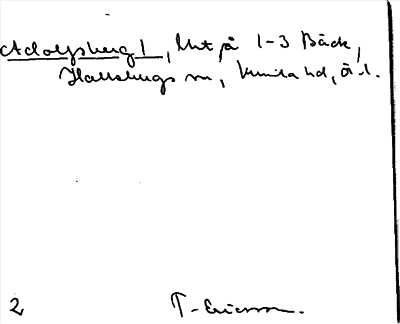 Adolfsberg 1, Utt på 1-3 Bäck,
Hallsbergs sn, Kumla hd, Ö-l.
2 T-Ericson.